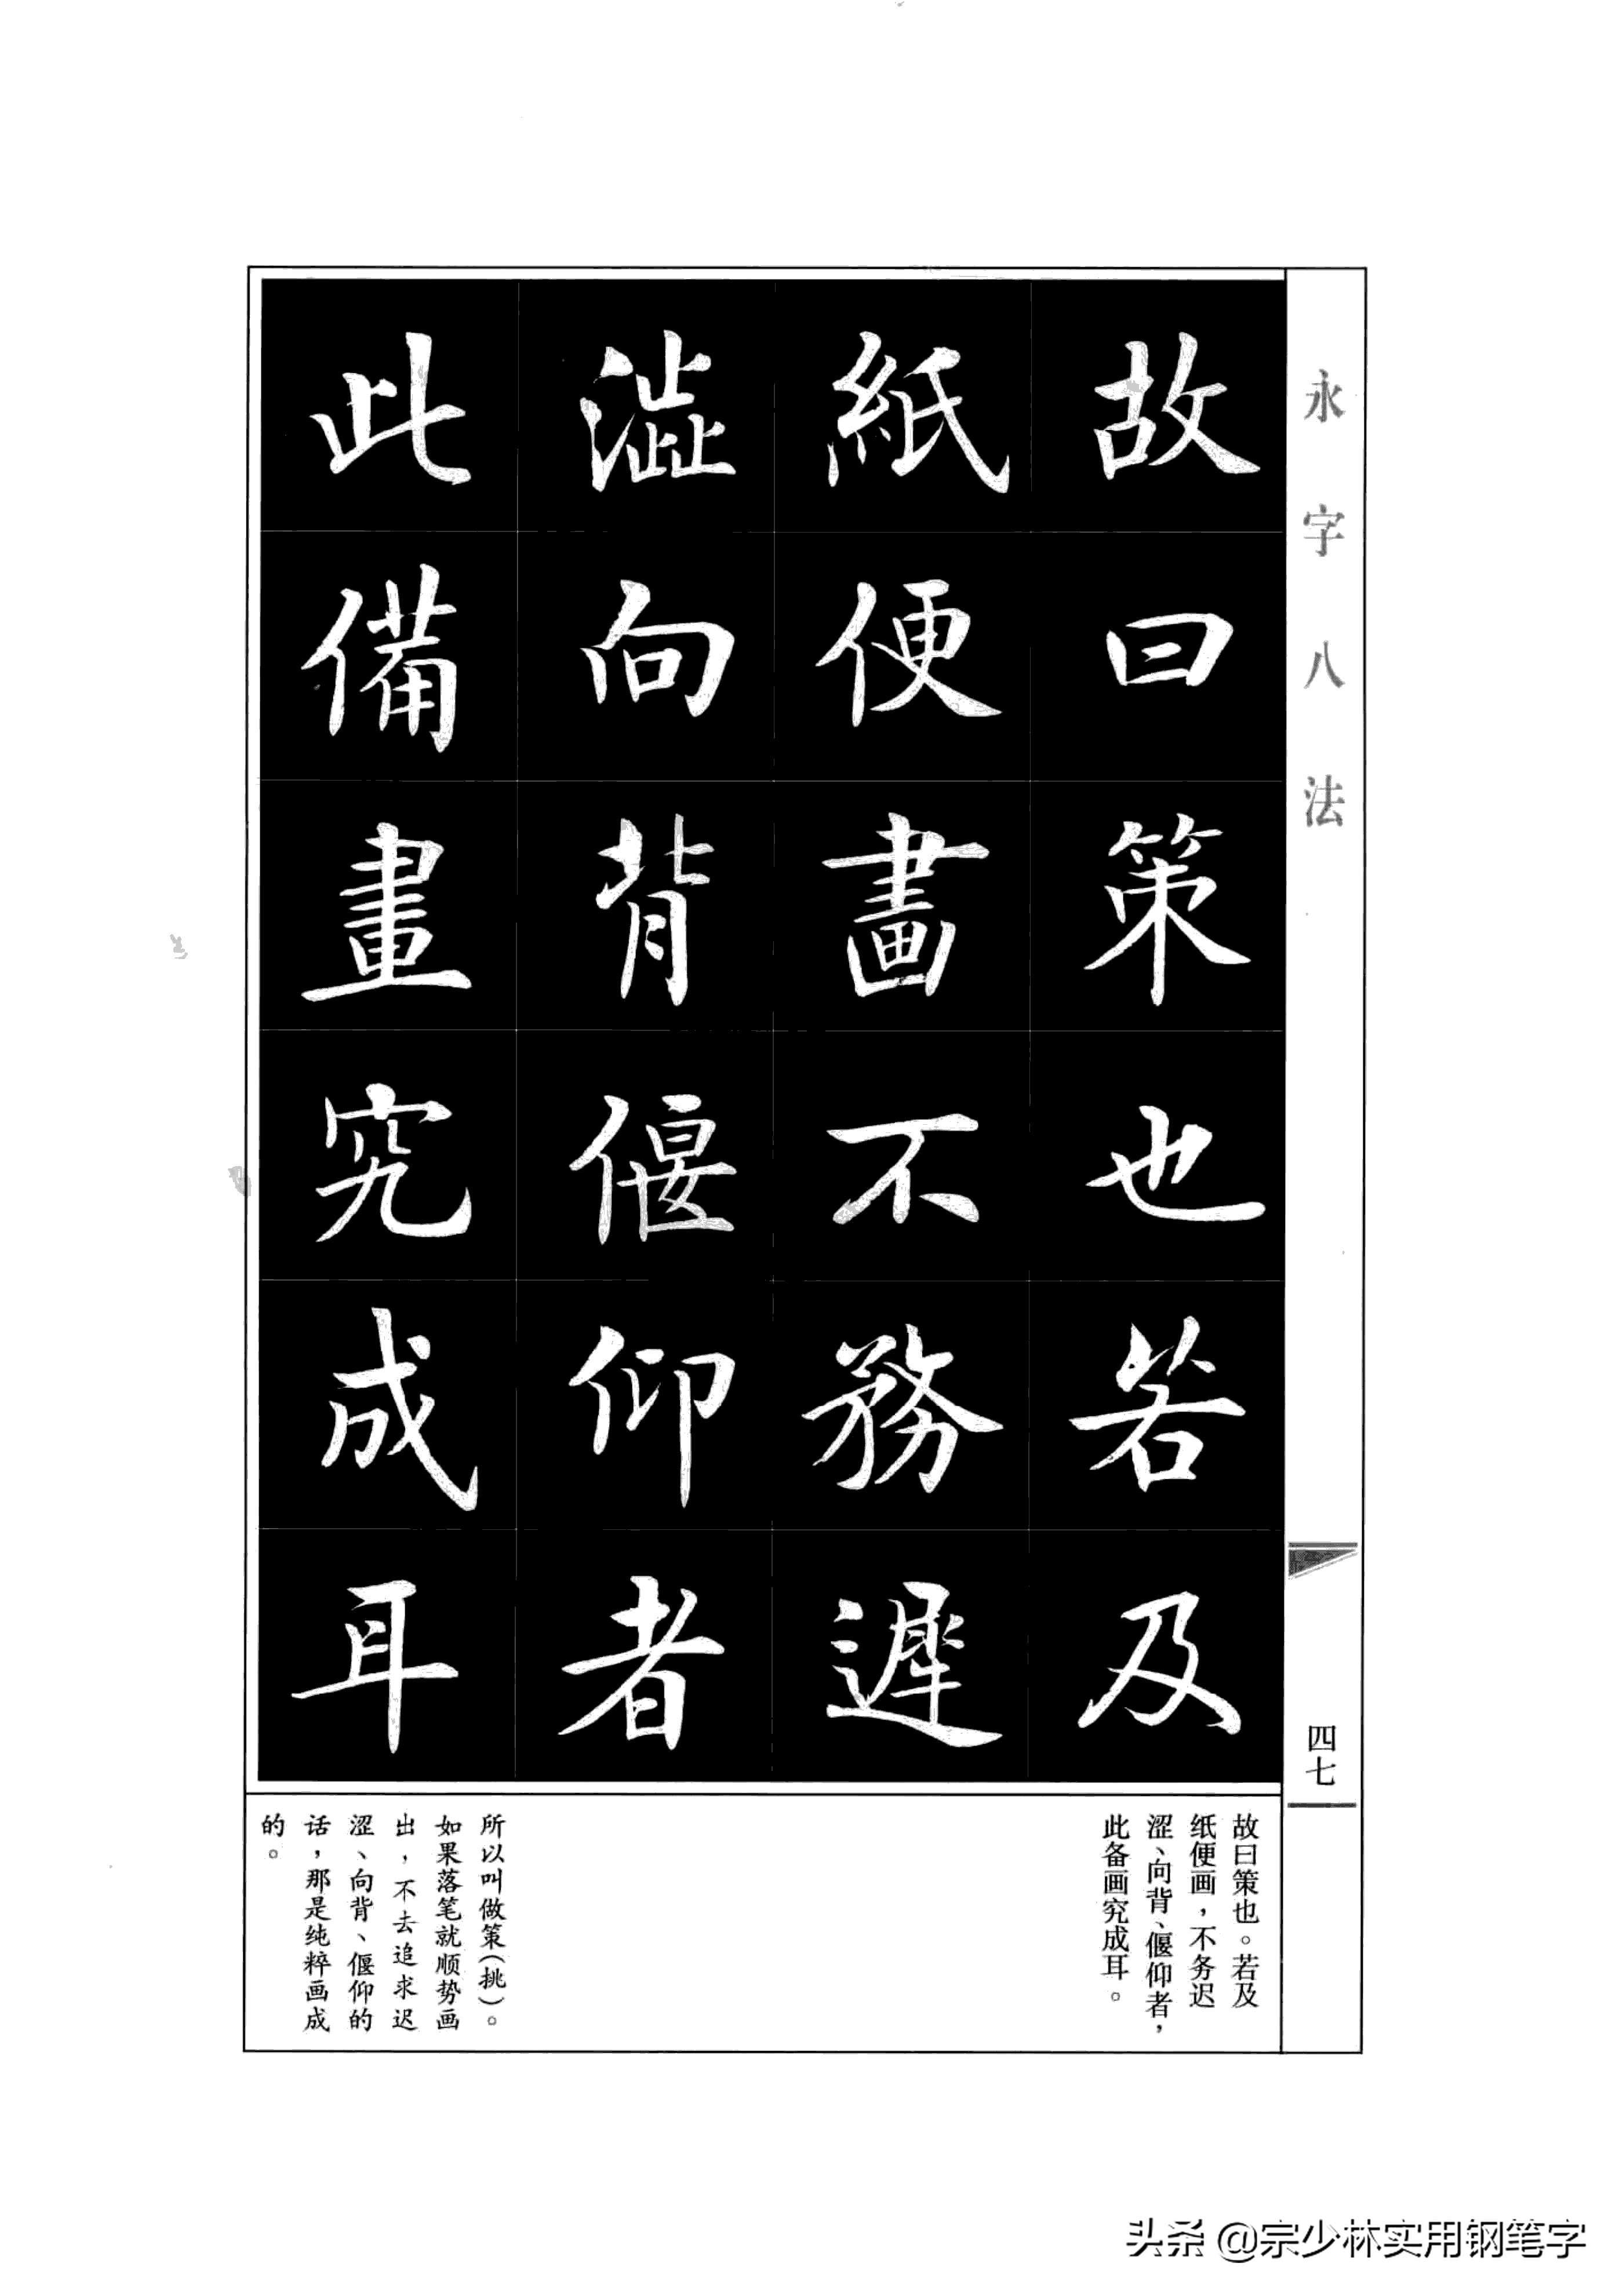 永字八法
故曰策也若及
紙便畫不務遲
澁向背偃仰者
此備畫究成耳
四七
故曰策也。若及
纸便画，不务迟
涩、向背、偃仰者，
此备画究成耳。
所以叫做策（挑）。
如果落笔就顺势画
出，不去追求迟
涩、向背、偃仰的
话，那是纯粹画成
的。
头条@宗少林实用钢笔字